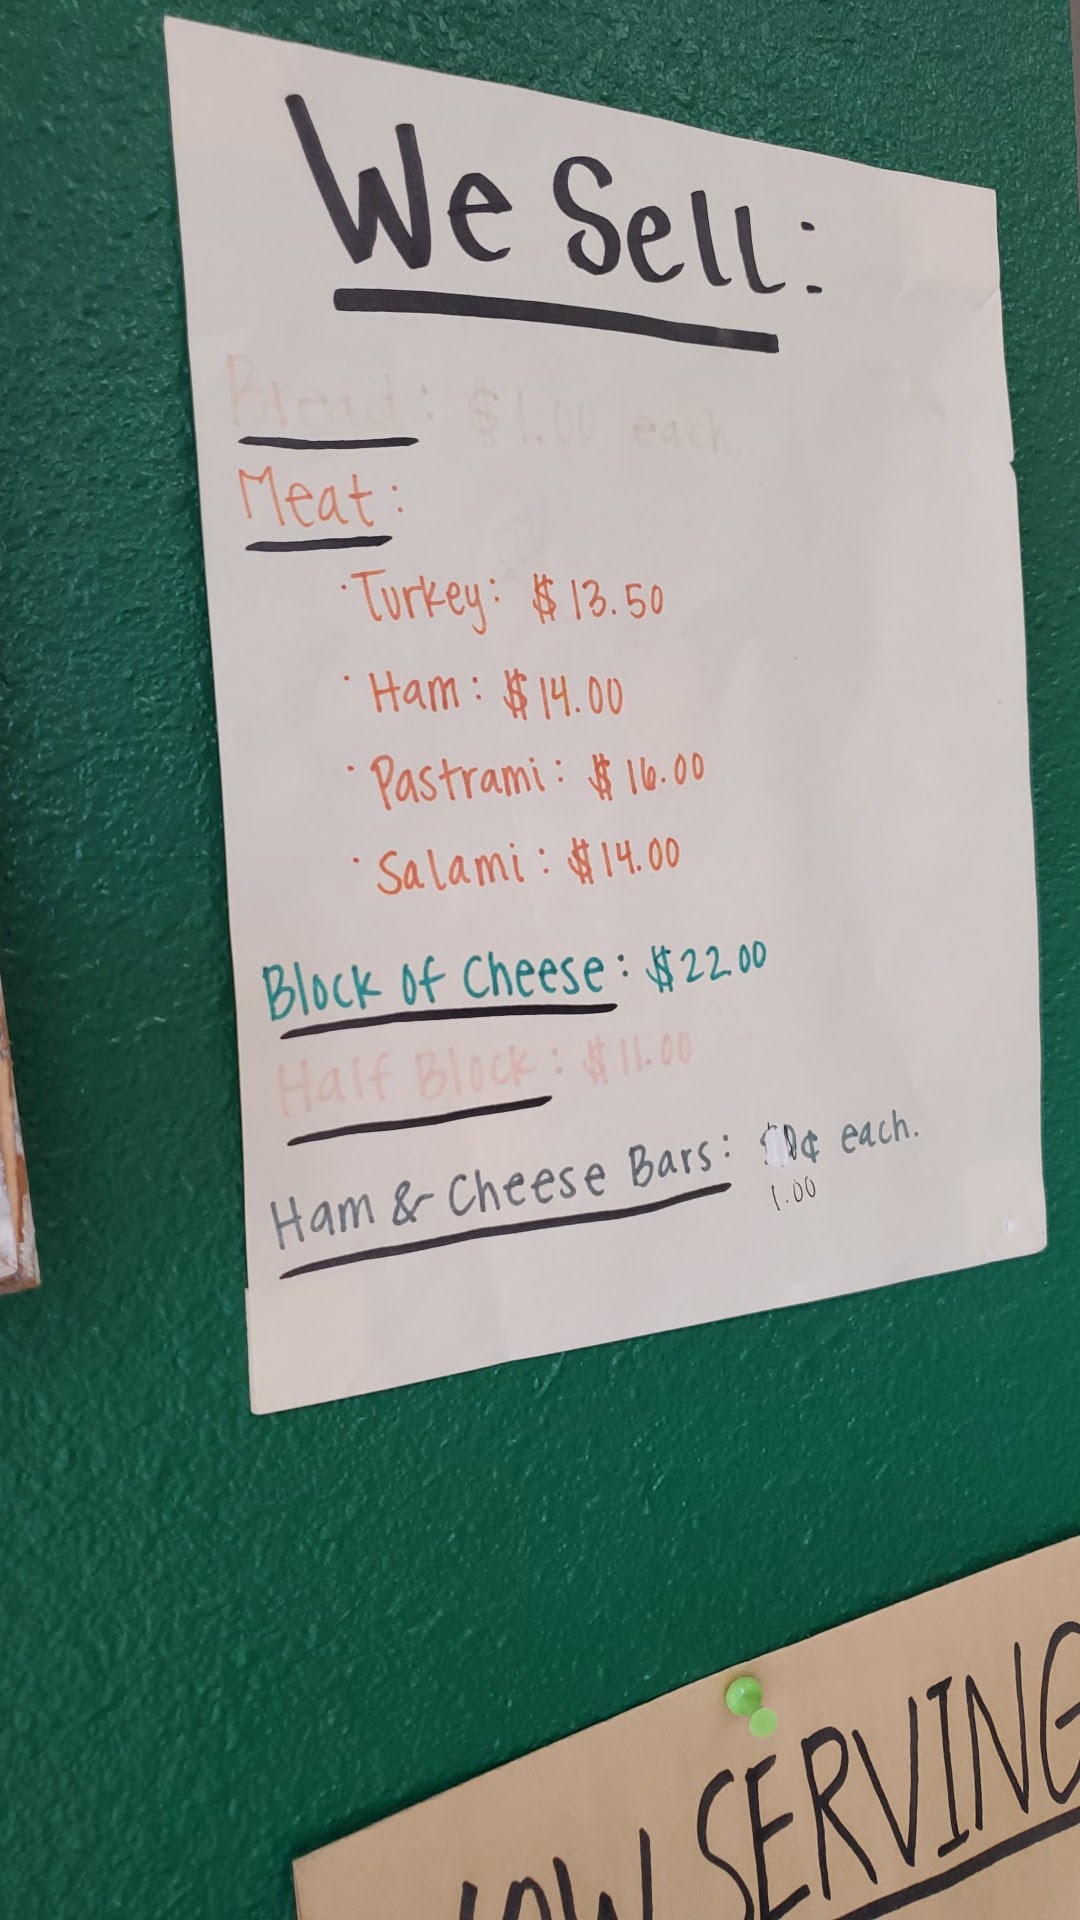 We Sell:
Bread: $1.00 each
Meat:
· Turkey: $13.50
· Ham: $14.00
· Pastrami: $16.00
· Salami: $14.00
Block of Cheese: $22.00
Half Block: $11.00
Ham & Cheese Bars: ¢ each.
1.00
NOW SERVING